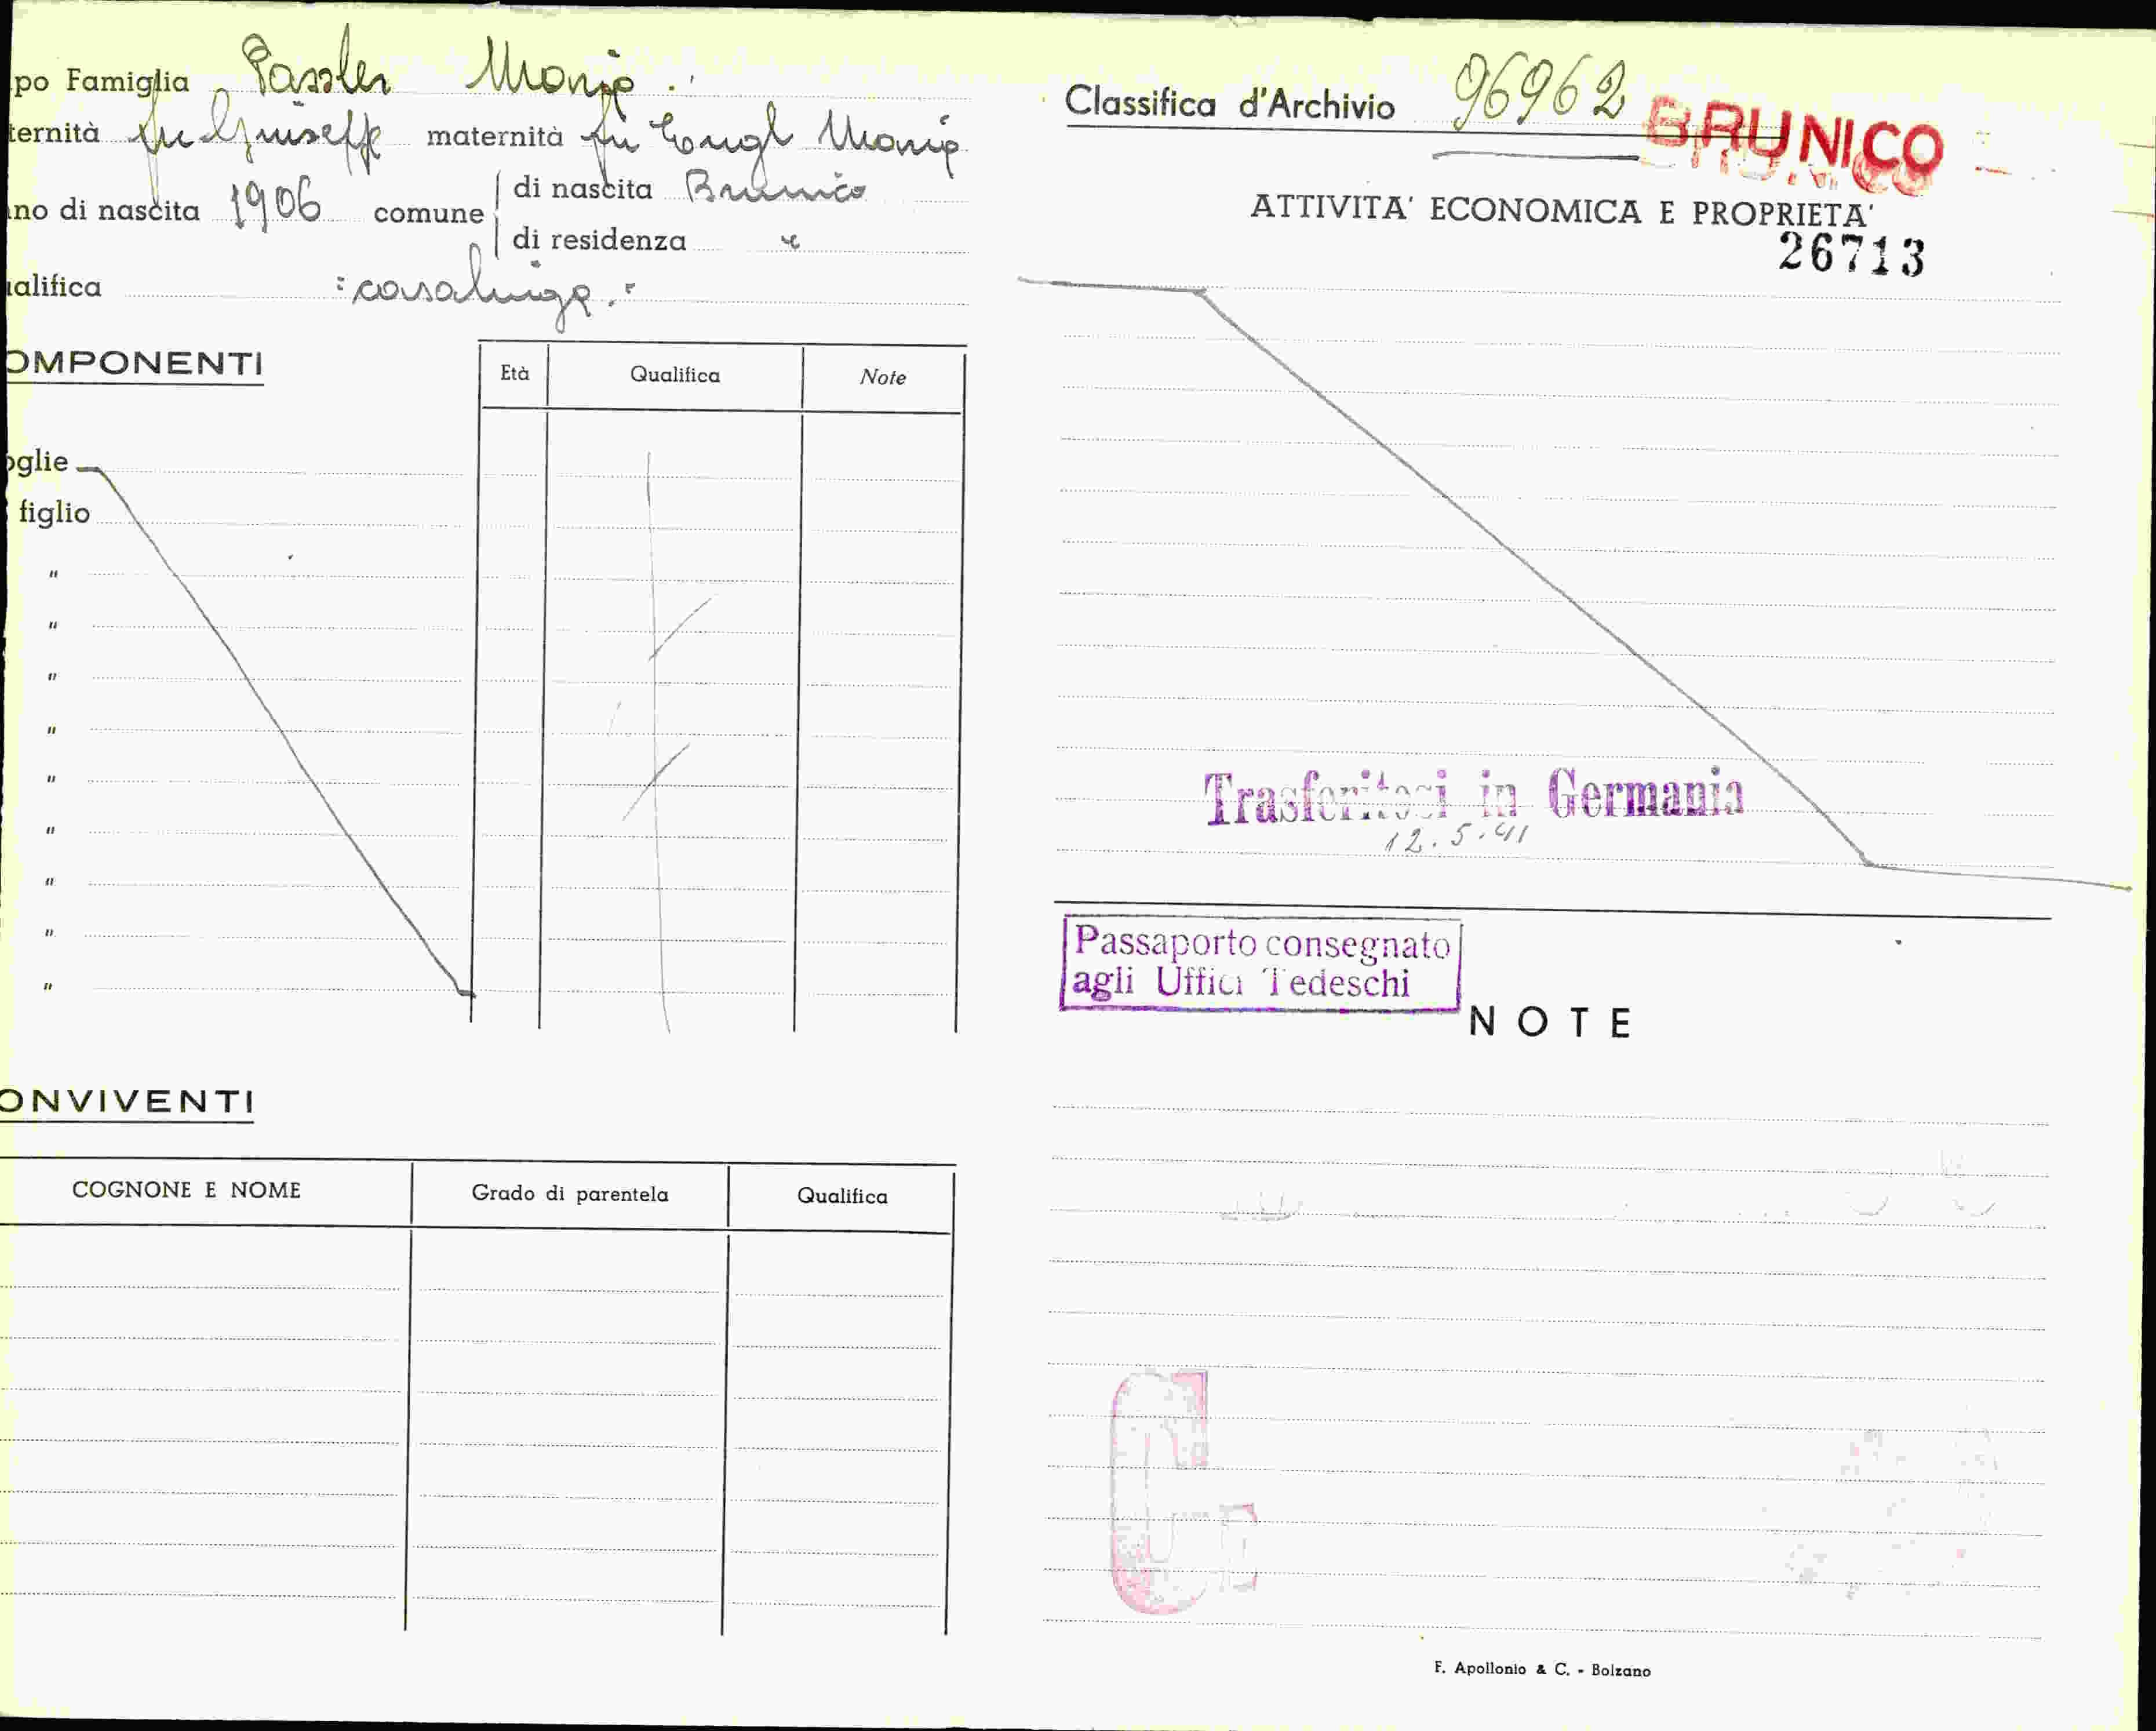 po Famiglia Passler Maria.
ternità fu Giuseppe maternità fu Engl Maria
no di nascita 1906 comune di nascita Brunico
di residenza "
alifica : casalinga. "
OMPONENTI
Età Qualifica Note
oglie
figlio
"
"
"
"
"
"
"
"
"
ONVIVENTI
COGNONE E NOME Grado di parentela Qualifica
Classifica d'Archivio 96962 BRUNICO
ATTIVITA' ECONOMICA E PROPRIETA'
26713
Trasferitosi in Germania
12.5.41
Passaporto consegnato
agli Uffici Tedeschi
NOTE
F. Apollonio & C. - Bolzano